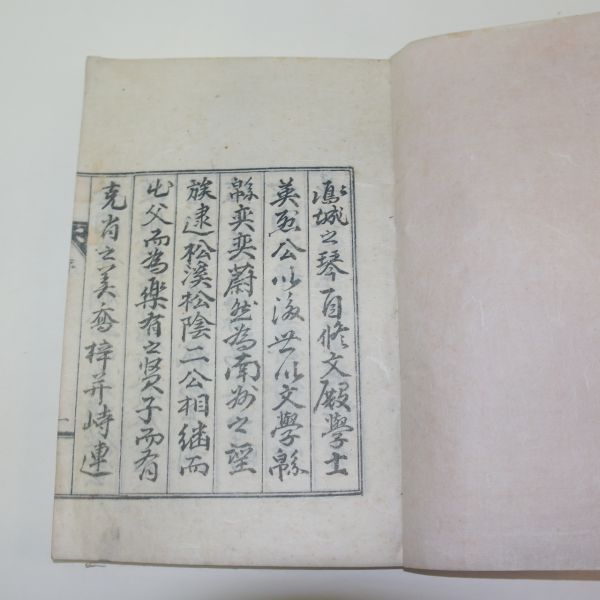 鳳城之琴自修文殿學士
英烈公以後世以文學綿
綿奕奕蔚然為南州之望
族逮松溪松陰二公相繼而
出父而為樂有之賢子而有
克肖之美喬梓并峙連
序
一